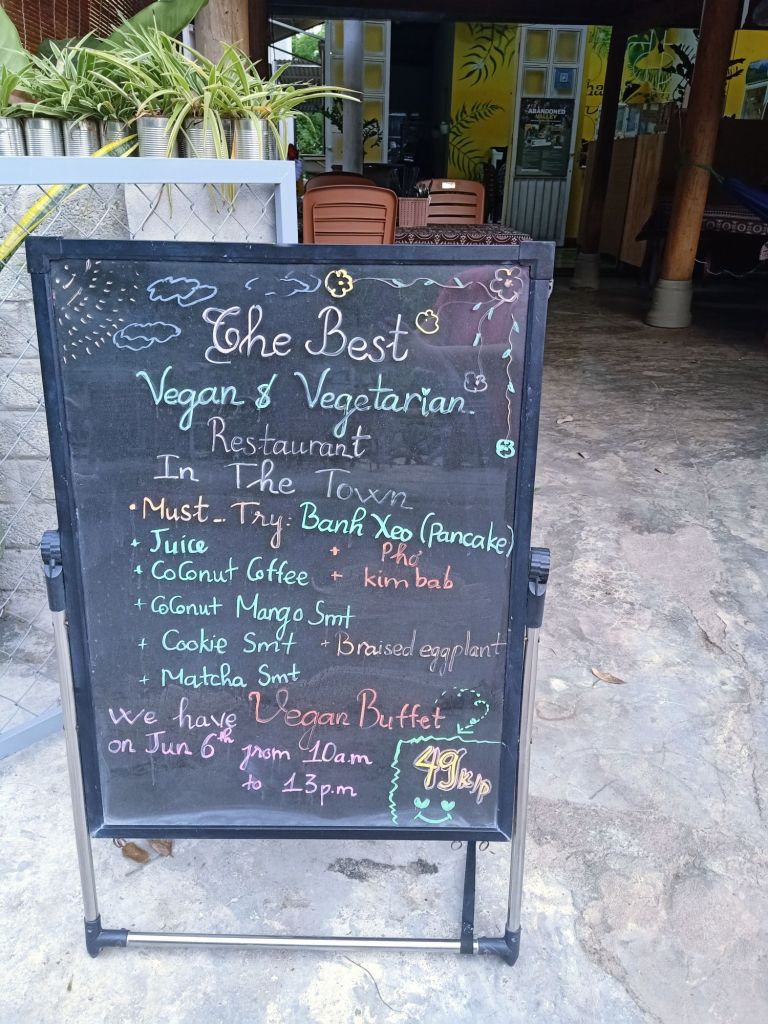 ABANDONED
VALLEY
The Best
Vegan & Vegetarian.
Restaurant
In The Town
• Must_ Try: Banh Xeo (Pancake)
+ Juice + Phở
+ CoConut Coffee + kim bab
+ CoConut Mango Smt
+ Cookie Smt + Braised eggplant
+ Matcha Smt
We have Vegan Buffet
on Jun 6th from 10a.m
to 13p.m
49K/p